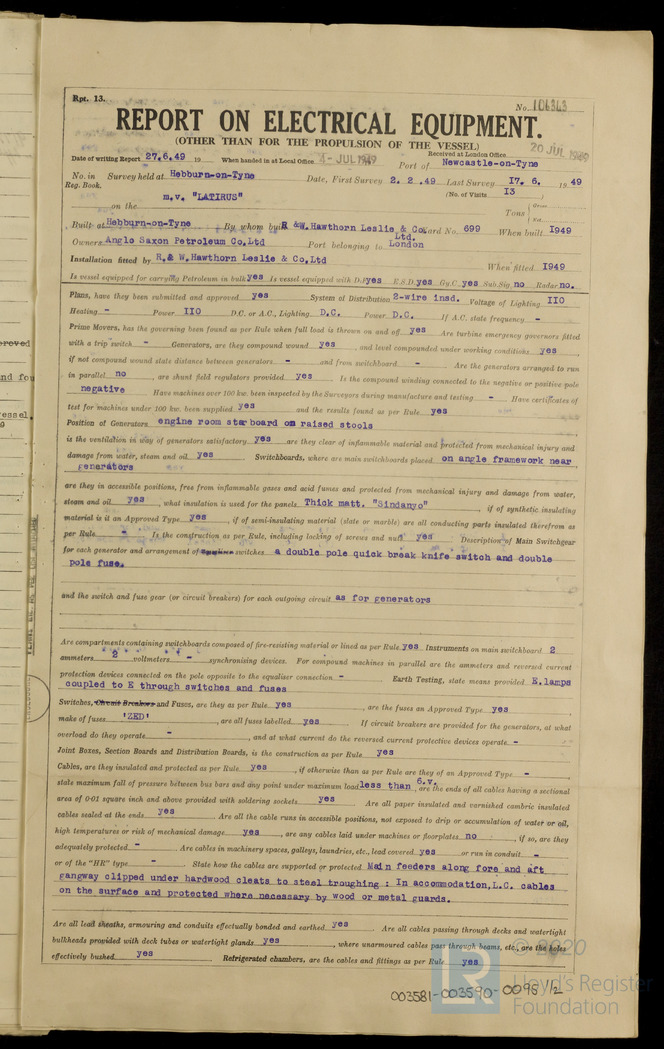 Rpt. 13.
No. 106343
REPORT ON ELECTRICAL EQUIPMENT.
(OTHER THAN FOR THE PROPULSION OF THE VESSEL)
20 JUL 1949
Date of writing Report 27.6.49 19 When handed in at Local Office 4-JUL 1949 Received at London Office
Port of Newcastle-on-Tyne
No. in Survey held at Hebburn-on-Tyne Date, First Survey 2. 2. 49 Last Survey 17. 6. 1949
Reg. Book. (No. of Visits 13 )
on the m,v, "LATIRUS" Tons { Gross
Net
Built at Hebburn-on-Tyne By whom built R &W.Hawthorn Leslie & Co. Ltd. Yard No. 699 When built 1949
Owners Anglo Saxon Petroleum Co.Ltd Port belonging to London
Installation fitted by R.& W.Hawthorn Leslie & Co.Ltd When fitted 1949
Is vessel equipped for carrying Petroleum in bulk yes Is vessel equipped with D.F. yes E.S.D. yes Gy.C. yes Sub.Sig. no Radar no.
Plans, have they been submitted and approved yes System of Distribution 2-wire insd. Voltage of Lighting 110
Heating - Power 110 D.C. or A.C., Lighting D.C. Power D.C. If A.C. state frequency -
Prime Movers, has the governing been found as per Rule when full load is thrown on and off yes Are turbine emergency governors fitted
with a trip switch - Generators, are they compound wound yes , and level compounded under working conditions yes ,
if not compound wound state distance between generators - and from switchboard - Are the generators arranged to run
in parallel no , are shunt field regulators provided yes Is the compound winding connected to the negative or positive pole
negative Have machines over 100 kw. been inspected by the Surveyors during manufacture and testing - Have certificates of
test for machines under 100 kw. been supplied yes and the results found as per Rule yes
Position of Generators engine room starboard on raised stools
is the ventilation in way of generators satisfactory yes are they clear of inflammable material and protected from mechanical injury and
damage from water, steam and oil yes Switchboards, where are main switchboards placed on angle framework near
generators
are they in accessible positions, free from inflammable gases and acid fumes and protected from mechanical injury and damage from water,
steam and oil yes , what insulation is used for the panels Thick matt. "Sindanyo" , if of synthetic insulating
material is it an Approved Type yes , if of semi-insulating material (slate or marble) are all conducting parts insulated therefrom as
per Rule - Is the construction as per Rule, including locking of screws and nuts yes Description of Main Switchgear
for each generator and arrangement of equaliser switches a double pole quick break knife switch and double
pole fuse.
and the switch and fuse gear (or circuit breakers) for each outgoing circuit as for generators
Are compartments containing switchboards composed of fire-resisting material or lined as per Rule yes Instruments on main switchboard 2
ammeters 2 voltmeters - synchronising devices. For compound machines in parallel are the ammeters and reversed current
protection devices connected on the pole opposite to the equaliser connection - Earth Testing, state means provided E.lamps
coupled to E through switches and fuses
Switches, Circuit Breakers and Fuses, are they as per Rule yes , are the fuses an Approved Type yes ,
make of fuses 'ZED' , are all fuses labelled yes If circuit breakers are provided for the generators, at what
overload do they operate - , and at what current do the reversed current protective devices operate -
Joint Boxes, Section Boards and Distribution Boards, is the construction as per Rule yes
Cables, are they insulated and protected as per Rule yes , if otherwise than as per Rule are they of an Approved Type - ,
state maximum fall of pressure between bus bars and any point under maximum load less than 6.v. , are the ends of all cables having a sectional
area of 0·01 square inch and above provided with soldering sockets yes Are all paper insulated and varnished cambric insulated
cables sealed at the ends yes Are all the cable runs in accessible positions, not exposed to drip or accumulation of water or oil,
high temperatures or risk of mechanical damage yes , are any cables laid under machines or floorplates no , if so, are they
adequately protected - Are cables in machinery spaces, galleys, laundries, etc., lead covered yes or run in conduit -
or of the "HR" type - State how the cables are supported or protected Main feeders along fore and aft
gangway clipped under hardwood cleats to steel troughing : In accommodation,L.C. cables
on the surface and protected where necessary by wood or metal guards.
Are all lead sheaths, armouring and conduits effectually bonded and earthed yes Are all cables passing through decks and watertight
bulkheads provided with deck tubes or watertight glands yes , where unarmoured cables pass through beams, etc., are the holes
effectively bushed yes Refrigerated chambers, are the cables and fittings as per Rule yes
003581-003590-0096 1/2
© 2020
LR
Lloyd's Register
Foundation